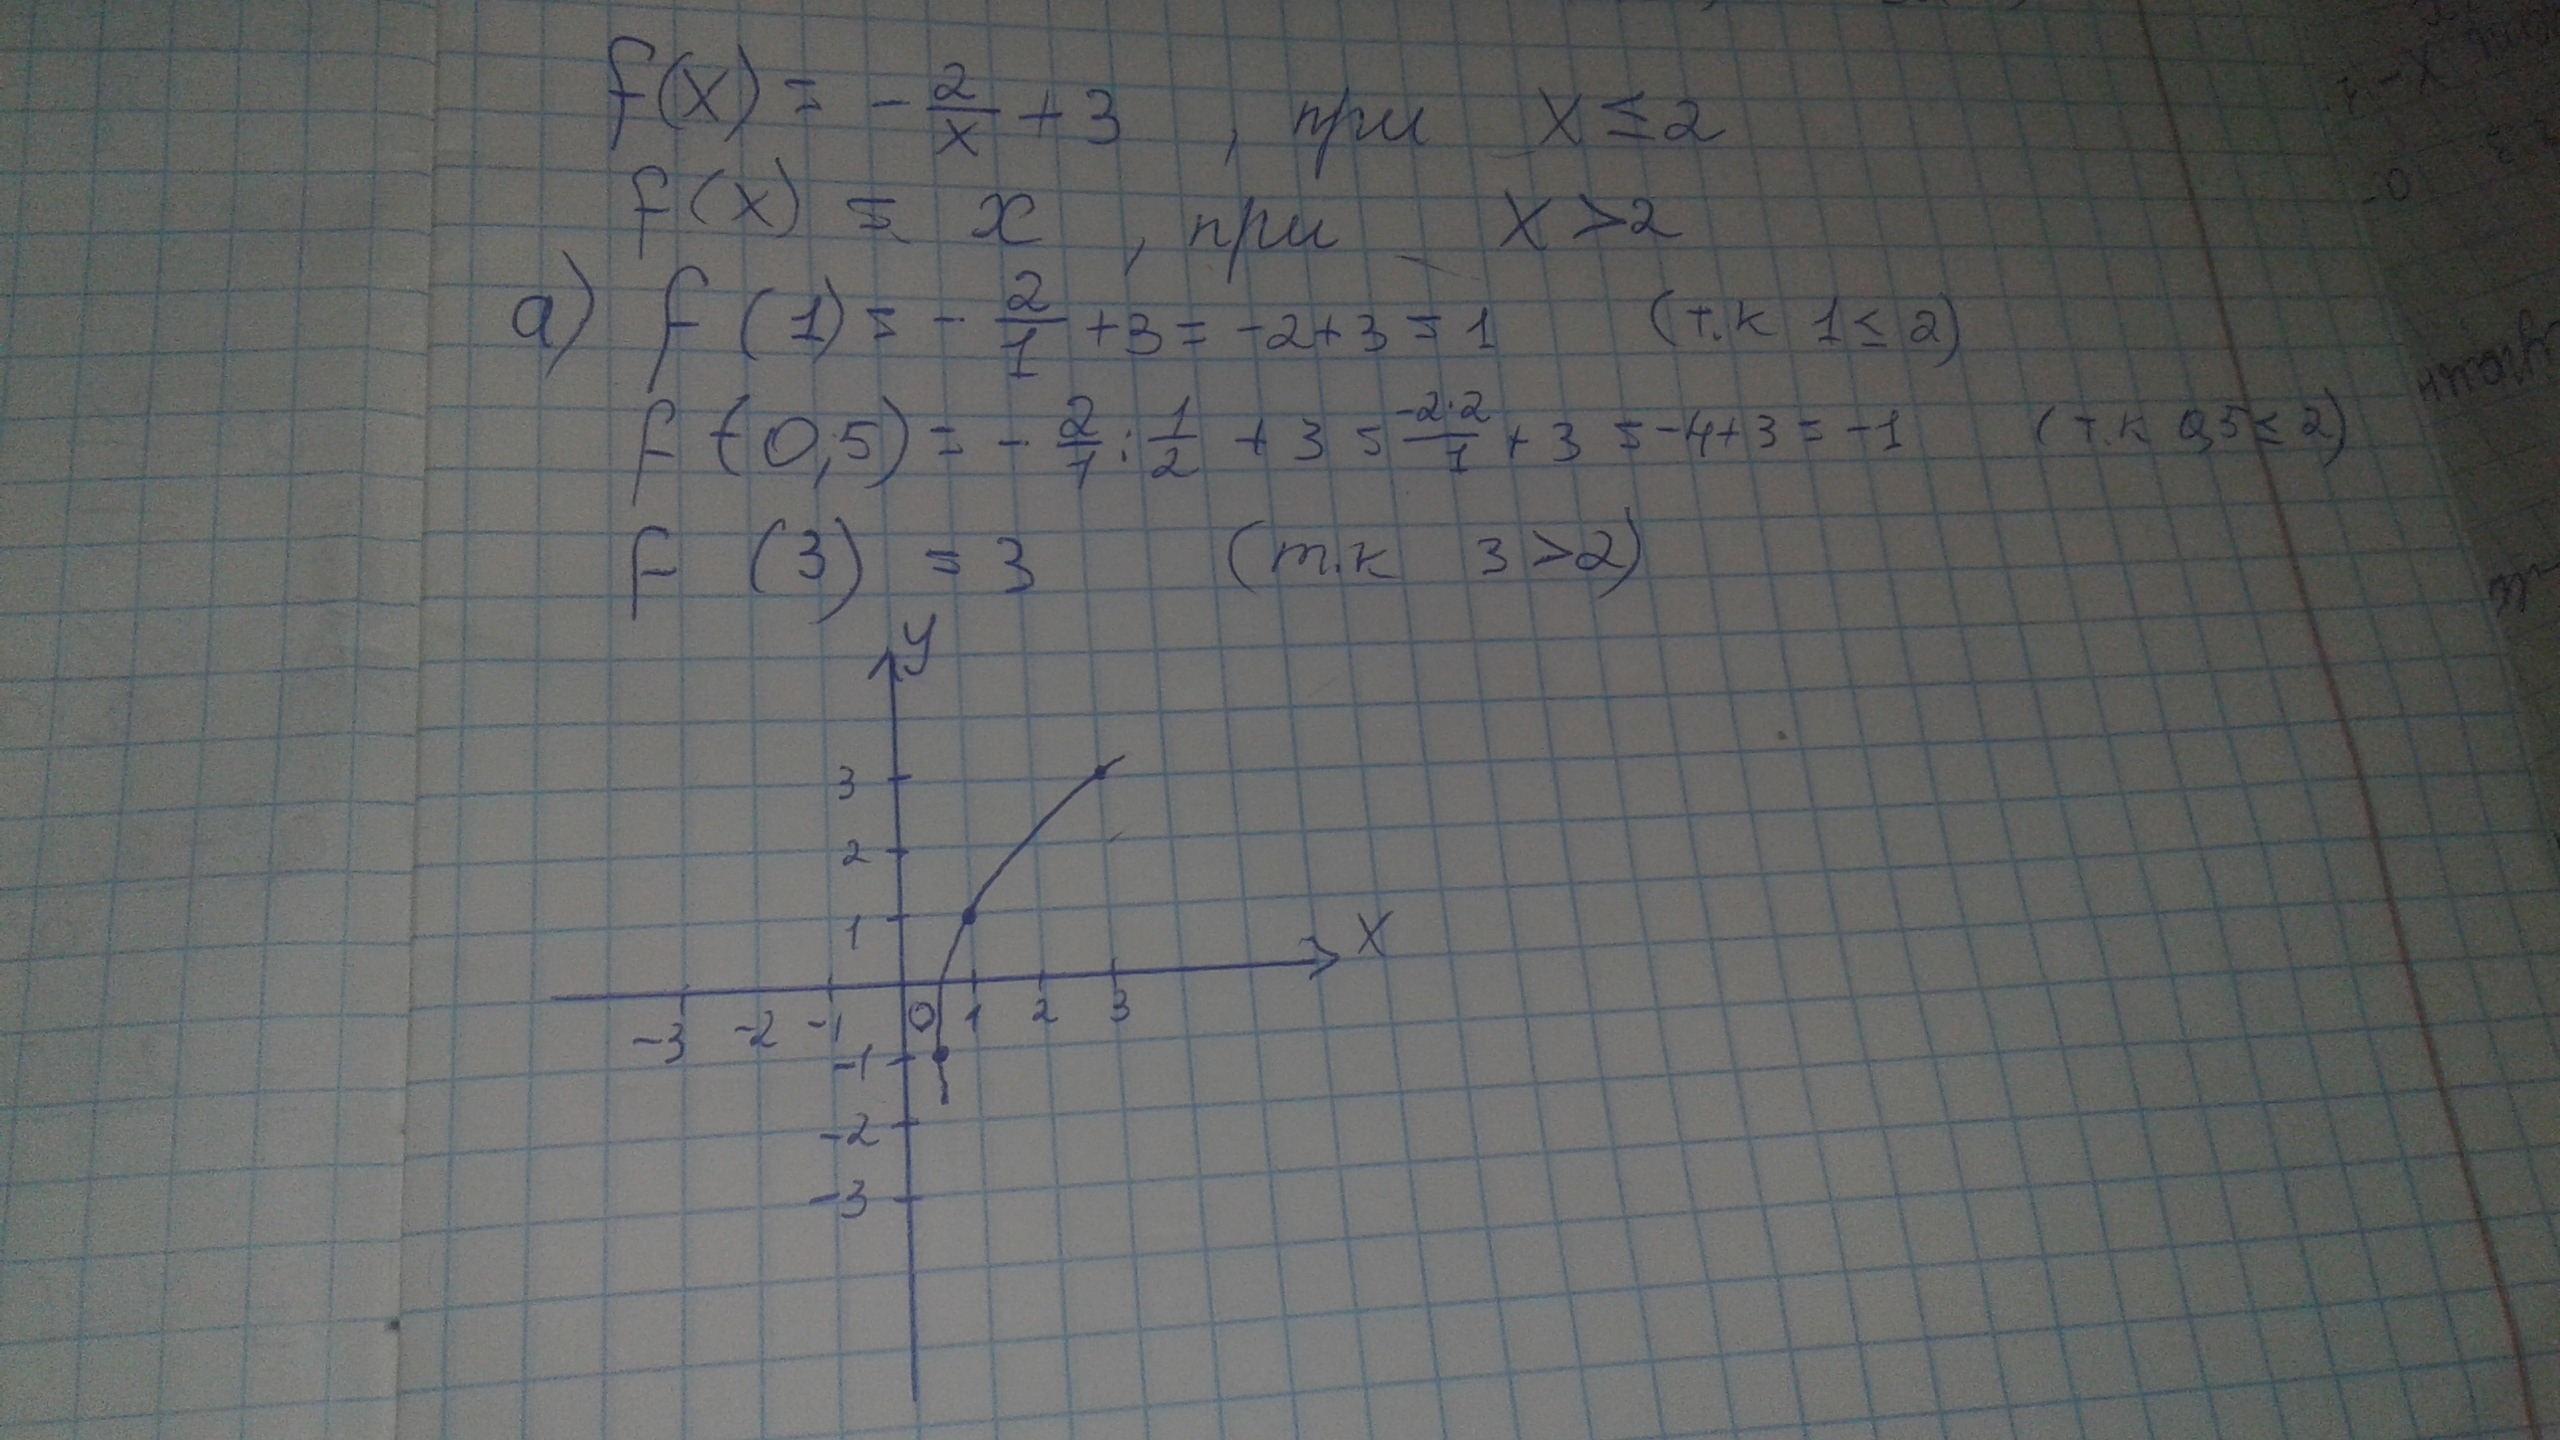 f(x) = - 2/x + 3 , при x ≤ 2
f(x) = x , при x > 2
а) f (1) = - 2/1 + 3 = -2+3 = 1 (т.к 1 ≤ 2)
f (0,5) = - 2/1 : 1/2 + 3 = -2·2/1 + 3 = -4+3 = -1 (т.к 0,5 ≤ 2)
f (3) = 3 (т.к 3 > 2)
y
3
2
1
x
-3 -2 -1 0 1 2 3
-1
-2
-3